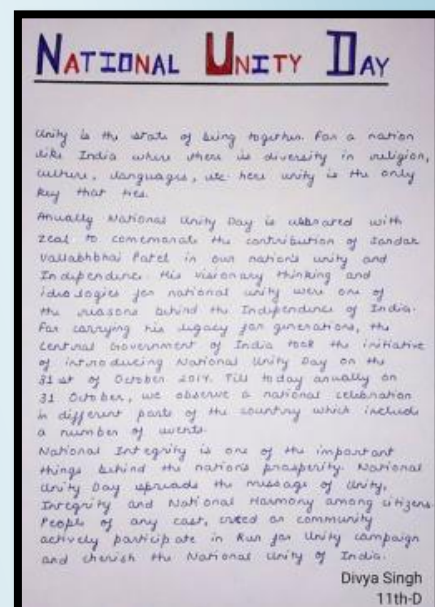 NATIONAL UNITY DAY
Unity is the state of being together. For a nation
like India where there is diversity in religion,
culture, languages, etc here unity is the only
key that ties.
Annually National Unity Day is celebrated with
zeal to comemorate the contribution of Sardar
Vallabhbhai Patel in our nation's unity and
Independence. His visionary thinking and
ideologies for national unity were one of
the reasons behind the Independence of India.
For carrying his legacy for generations, the
Central Government of India took the initiative
of introducing National Unity Day on the
31st of October 2014. Till today annually on
31 October, we observe a national celebration
in different parts of the country which include
a number of events.
National Integrity is one of the important
things behind the nation's prosperity. National
Unity Day spreads the message of Unity,
Integrity and National Harmony among citizens.
People of any cast, creed or community
actively participate in Run for Unity campaign
and cherish the National Unity of India.
Divya Singh
11th-D